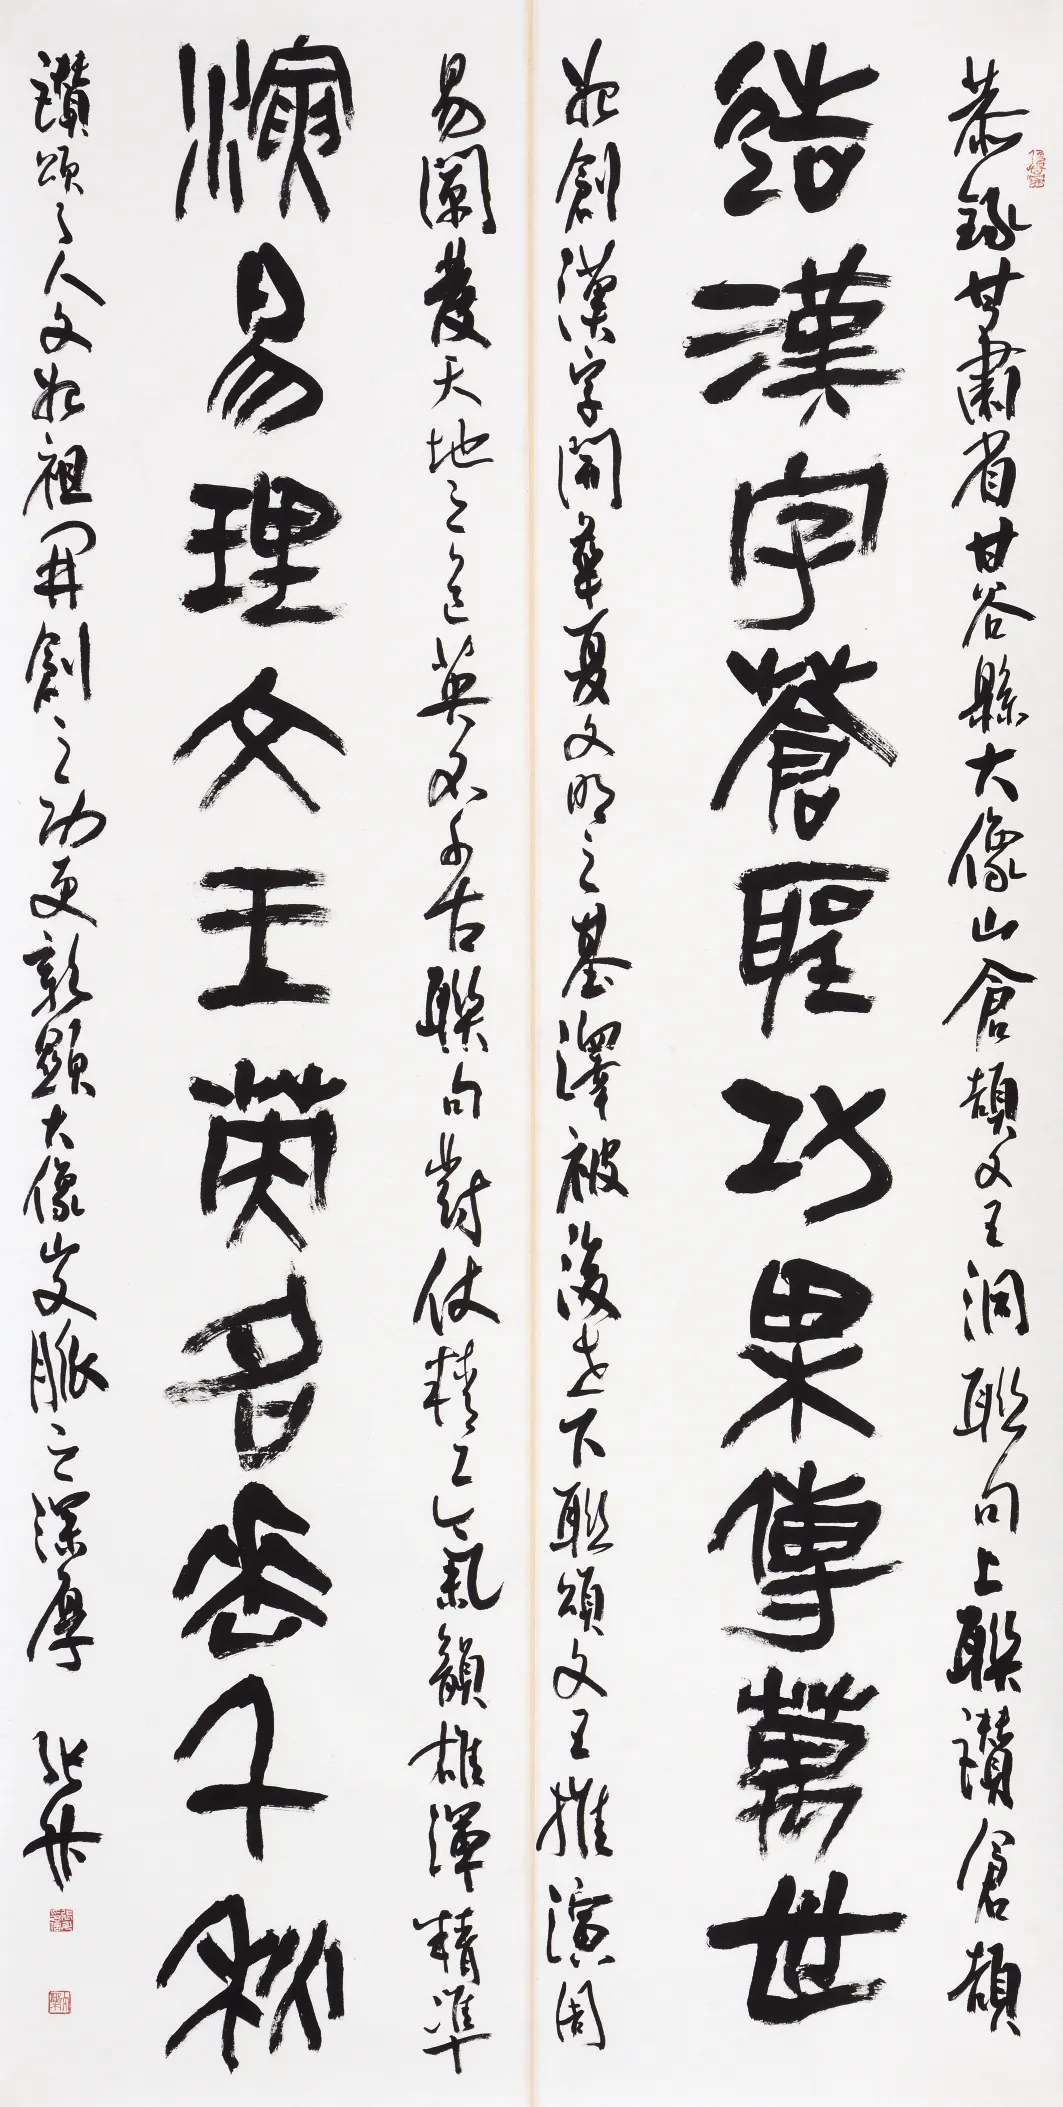 恭錄甘肅省甘谷縣大像山倉頡文王洞聯句上聯讚倉頡
結漢字蒼聖巧果傳萬世
始創漢字開華夏文明之基澤被後世下聯頌文王推演周
易闡發天地之道英名千古聯句對仗精工氣韻雄渾精準
演易理文王英名垂千秋
讚頌了人文始祖開創之功更彰顯大像山文脈之深厚